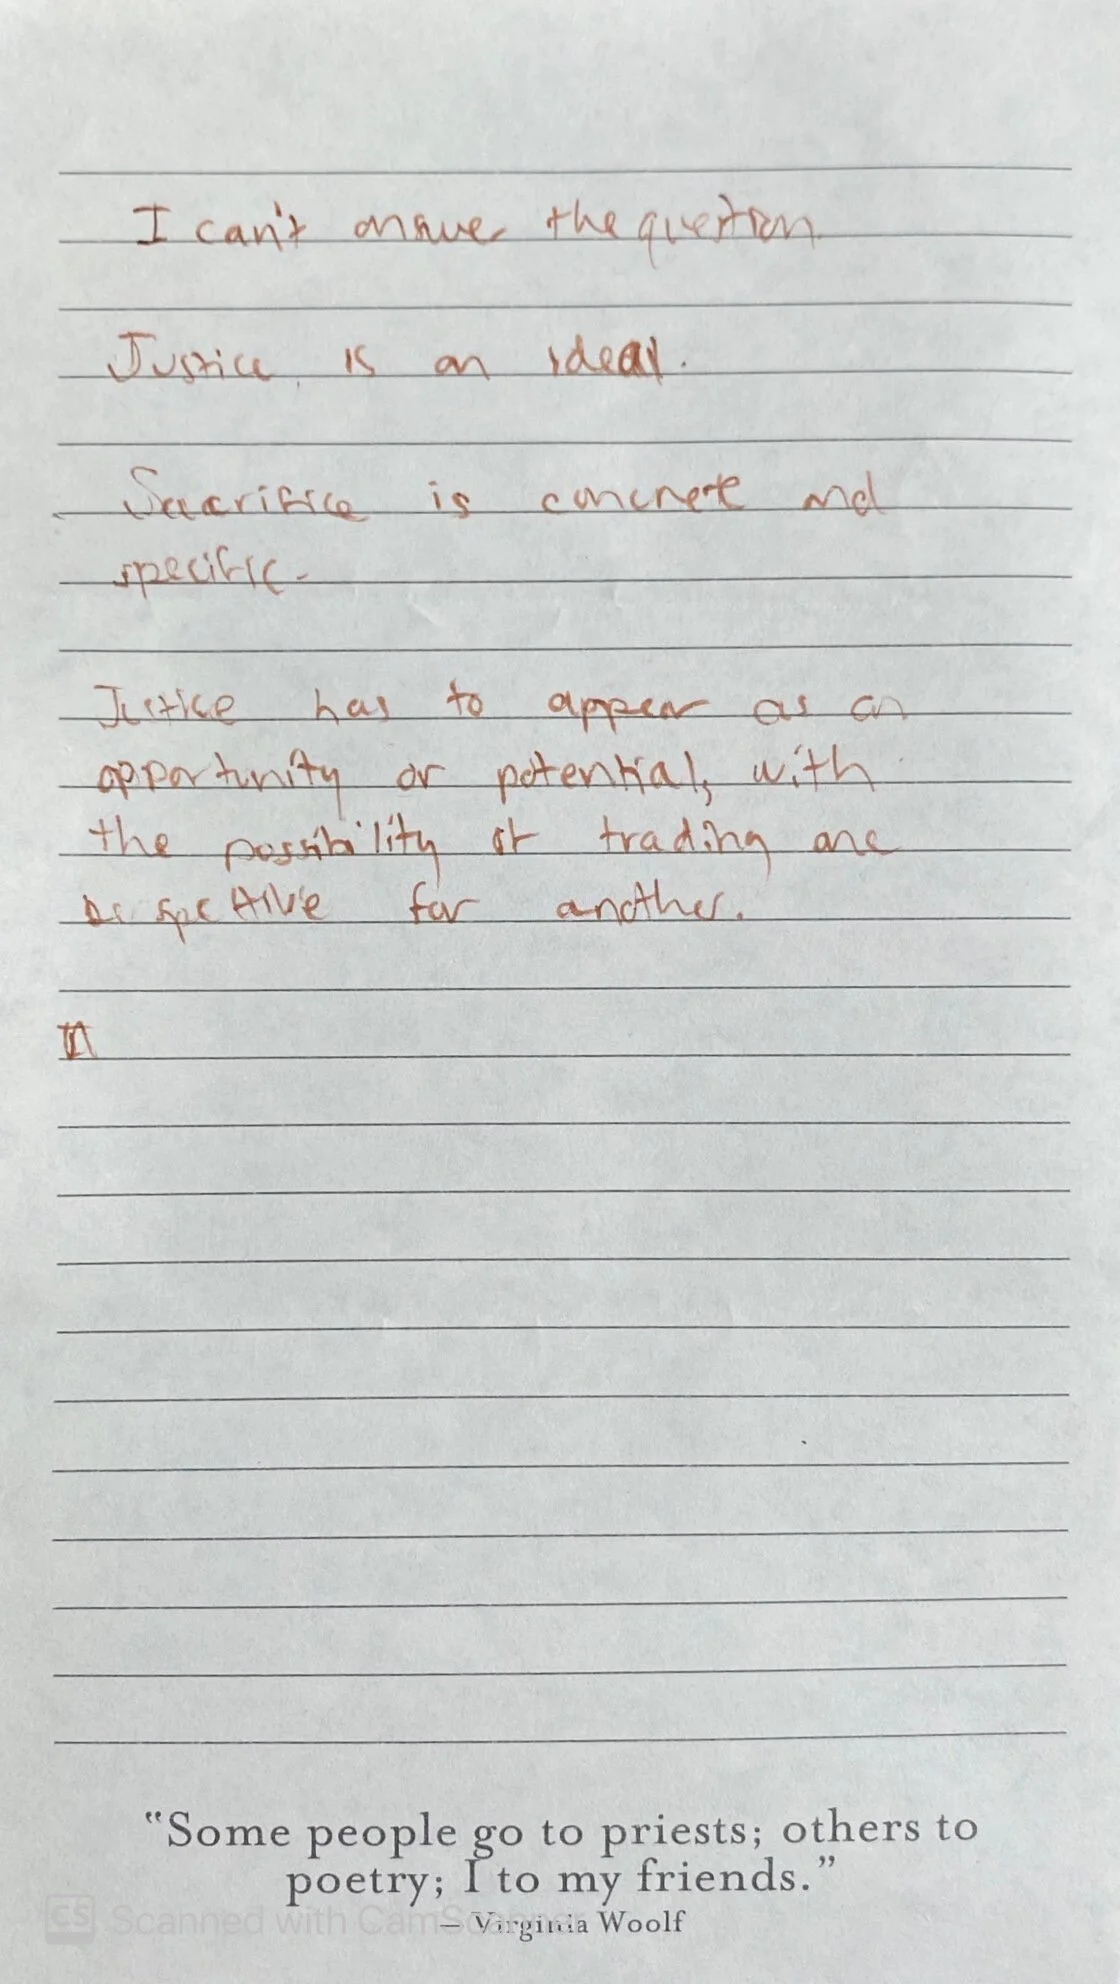 I can't answer the question.
Justice is an ideal.
Sacrifice is concrete and
specific.
Justice has to appear as an
opportunity or potential, with
the possibility of trading one
for another.
"Some people go to priests; others to
poetry; I to my friends."
CS Scanned with CamScanner
— Virginia Woolf